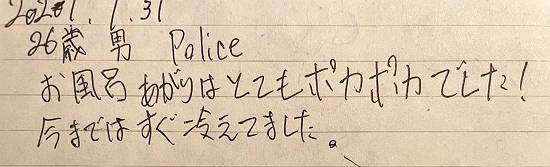 2021.1.31
26歳 男 Police
お風呂あがりはとてもポカポカでした!
今まではすぐ冷えてました。